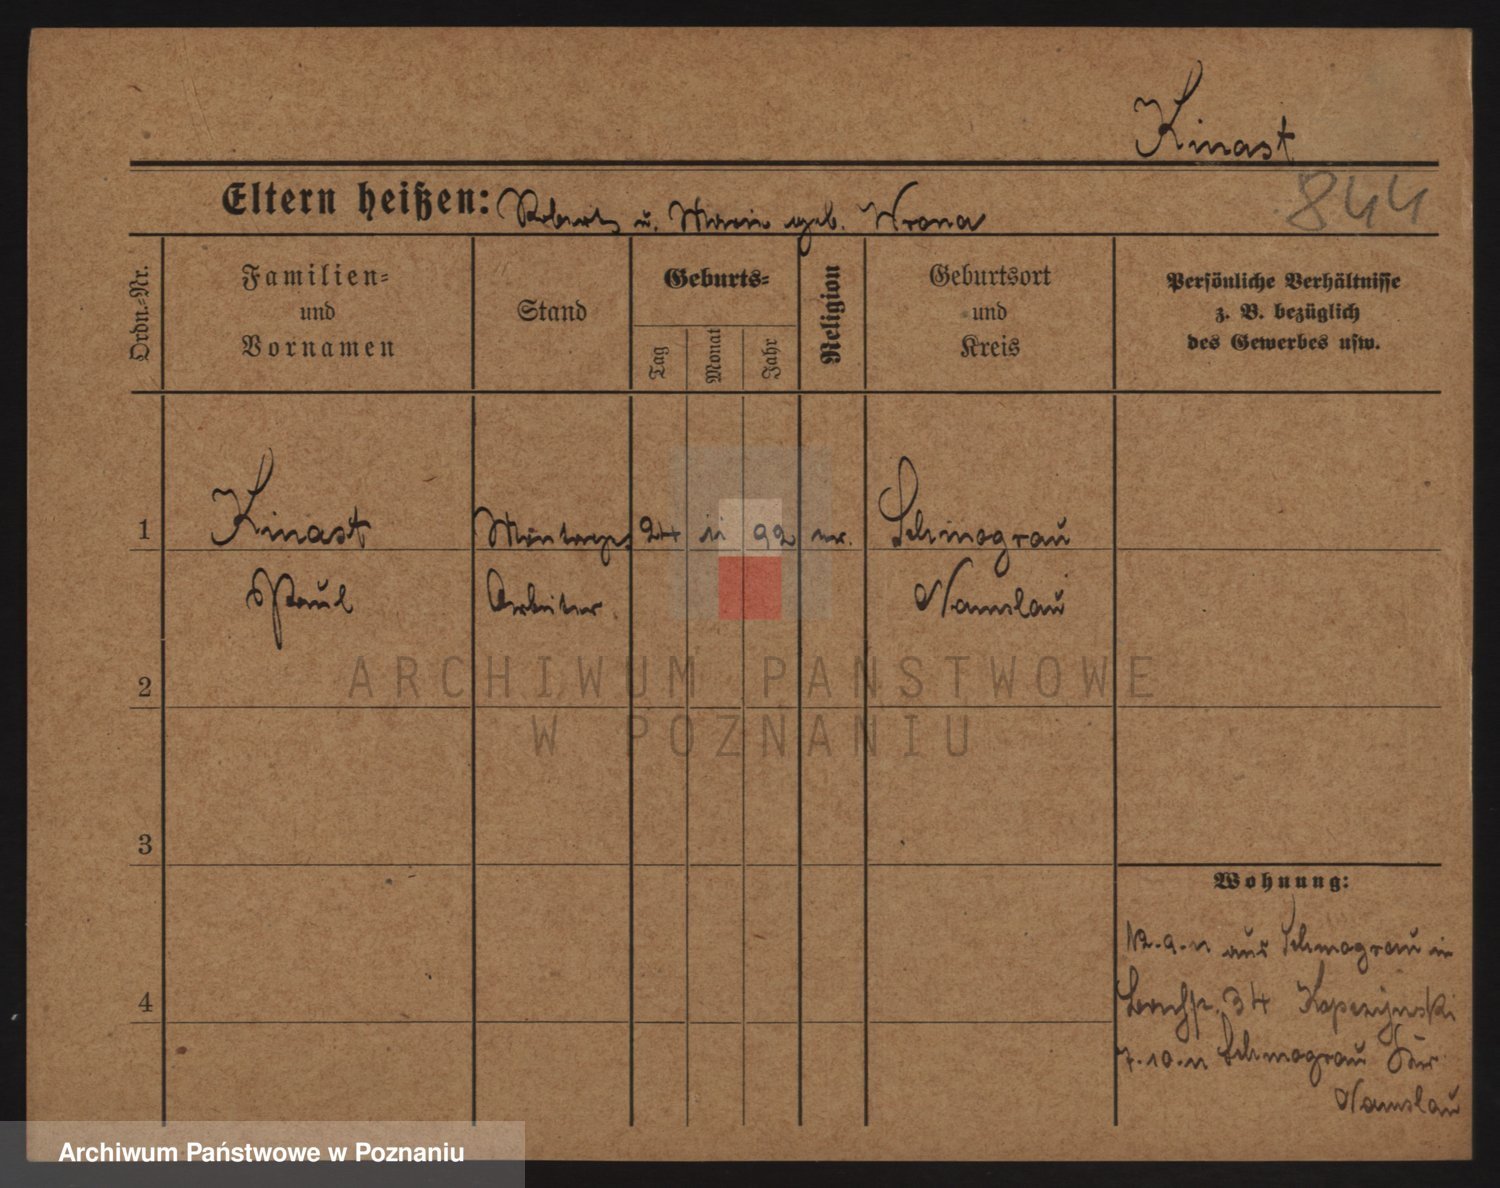 Kinast
844
Eltern heißen: Robert u. Marie geb. Wrona
Ordn.-Nr.
Familien-
und
Vornamen
Stand
Geburts-
Tag
Monat
Jahr
Religion
Geburtsort
und
Kreis
Persönliche Verhältnisse
z. B. bezüglich
des Gewerbes usw.
1
Kinast
24 11 92
Schmograu
Paul
Arbeiter
Namslau
ARCHIWUM PAŃSTWOWE
W POZNANIU
2
3
4
Wohnung:
12.9.11 aus Schmograu in
34
7.10.11 Schmograu
Namslau
Archiwum Państwowe w Poznaniu